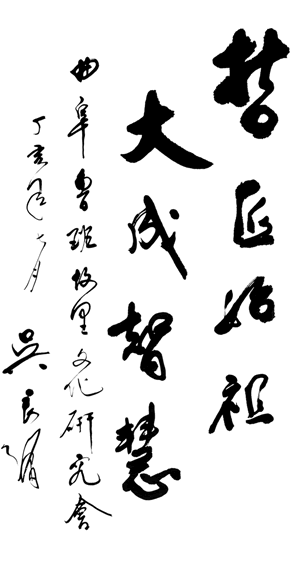 哲匠始祖
大成智慧
曲阜鲁班故里文化研究會
丁亥年七月
吴良镛